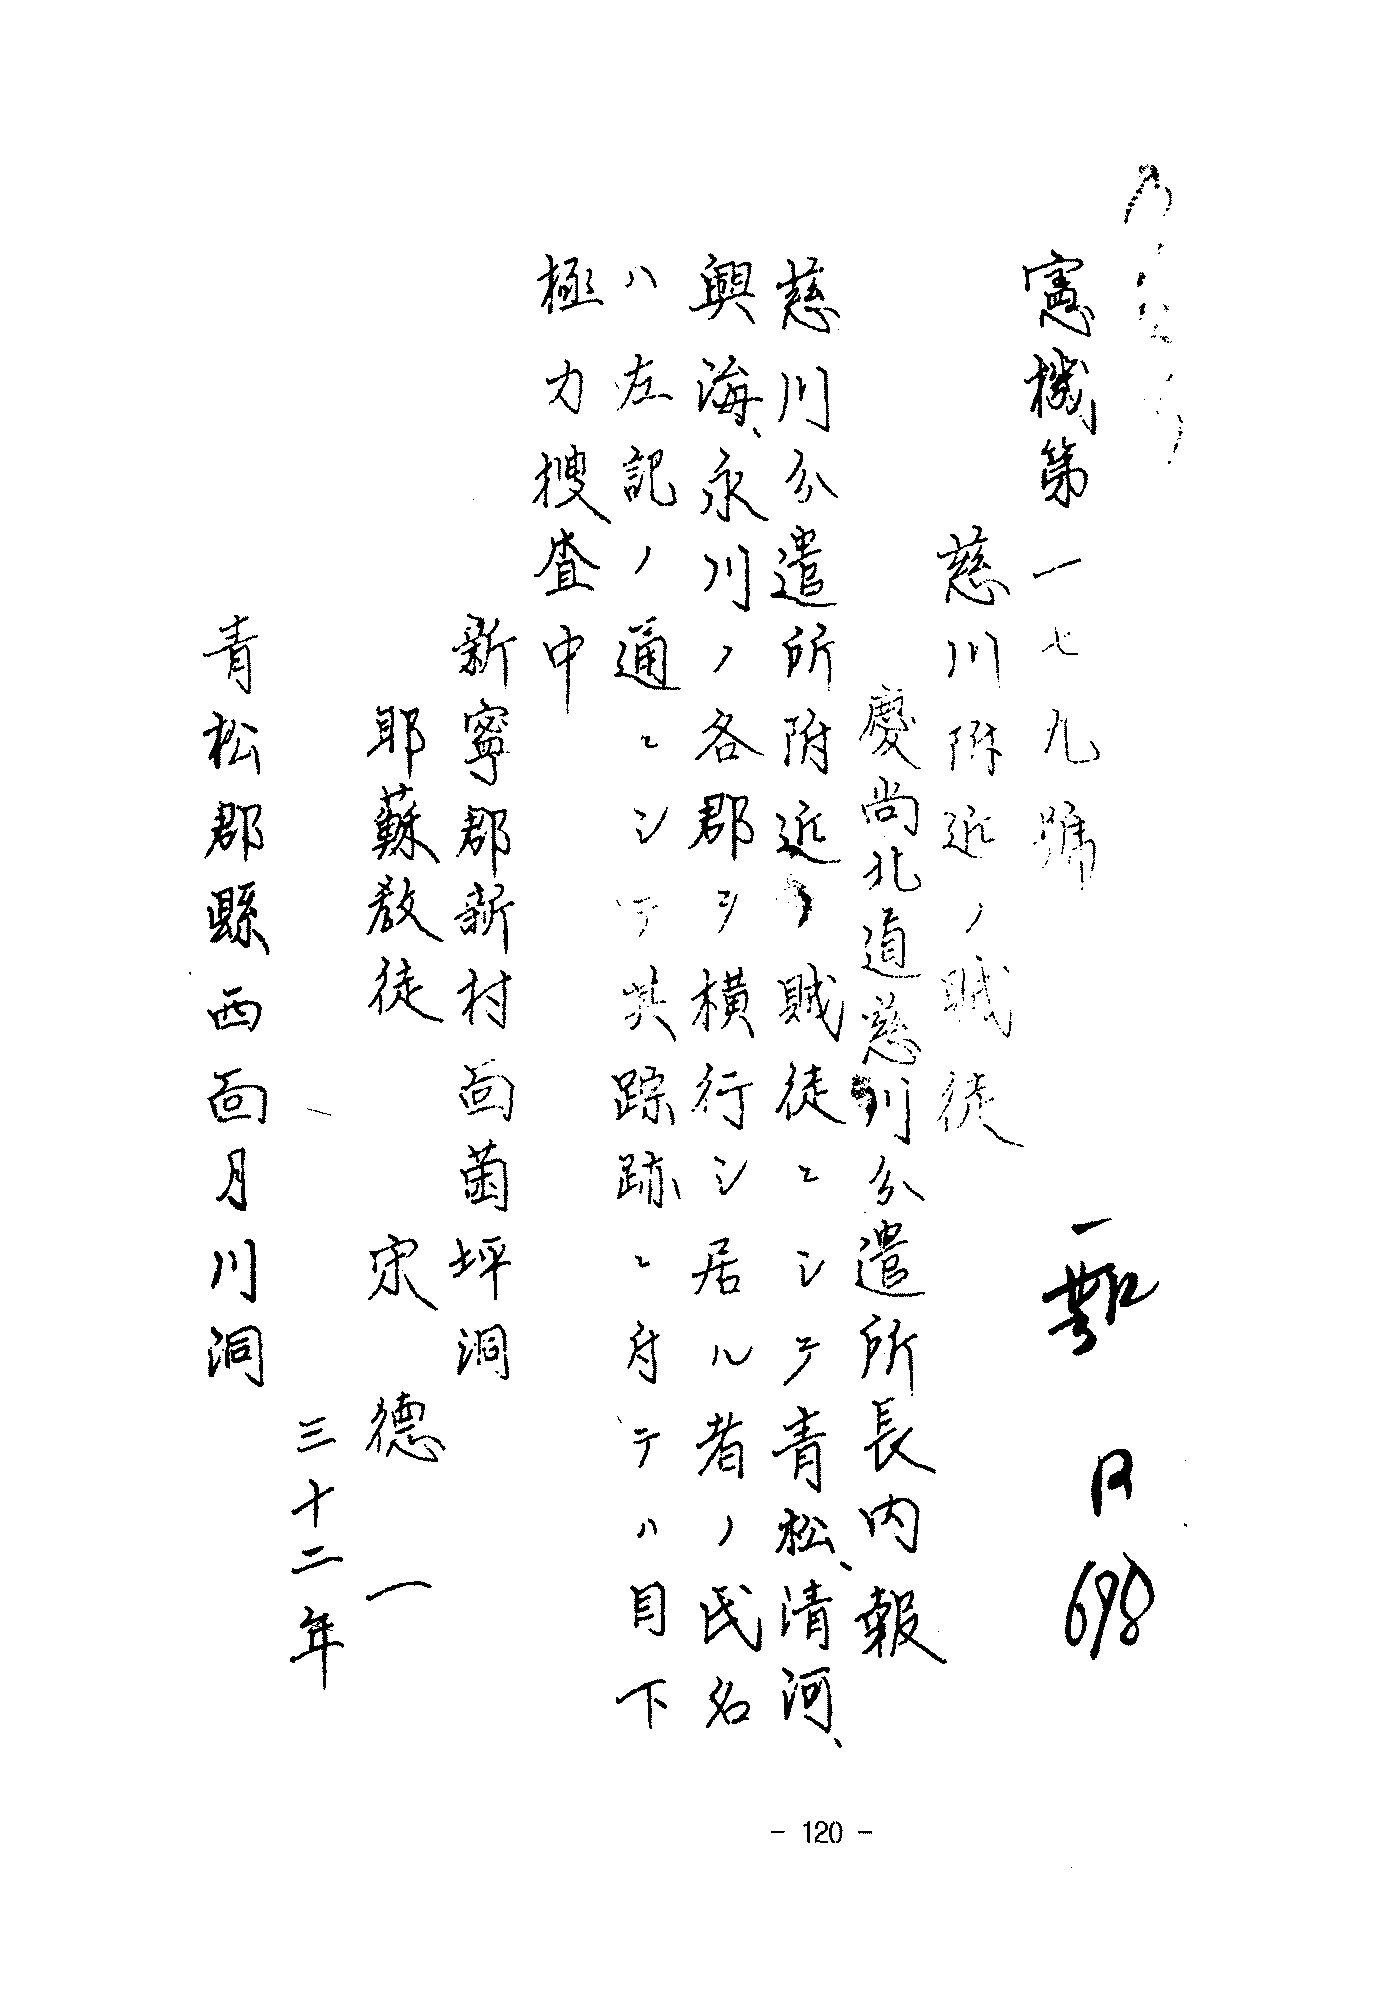 憲機第一七九號
慈川附近ノ賊徒
慶尚北道慈川分遣所長内報
慈川分遣所附近ノ賊徒ニシテ青松、清河、
興海、永川ノ各郡ヲ横行シ居ル者ノ氏名
ハ左記ノ通ニシテ其踪跡ニ付テハ目下
極力捜査中
新寧郡新村面菌坪洞
耶蘇教徒 宋德一
三十二年
青松郡縣西面月川洞
R
698
- 120 -